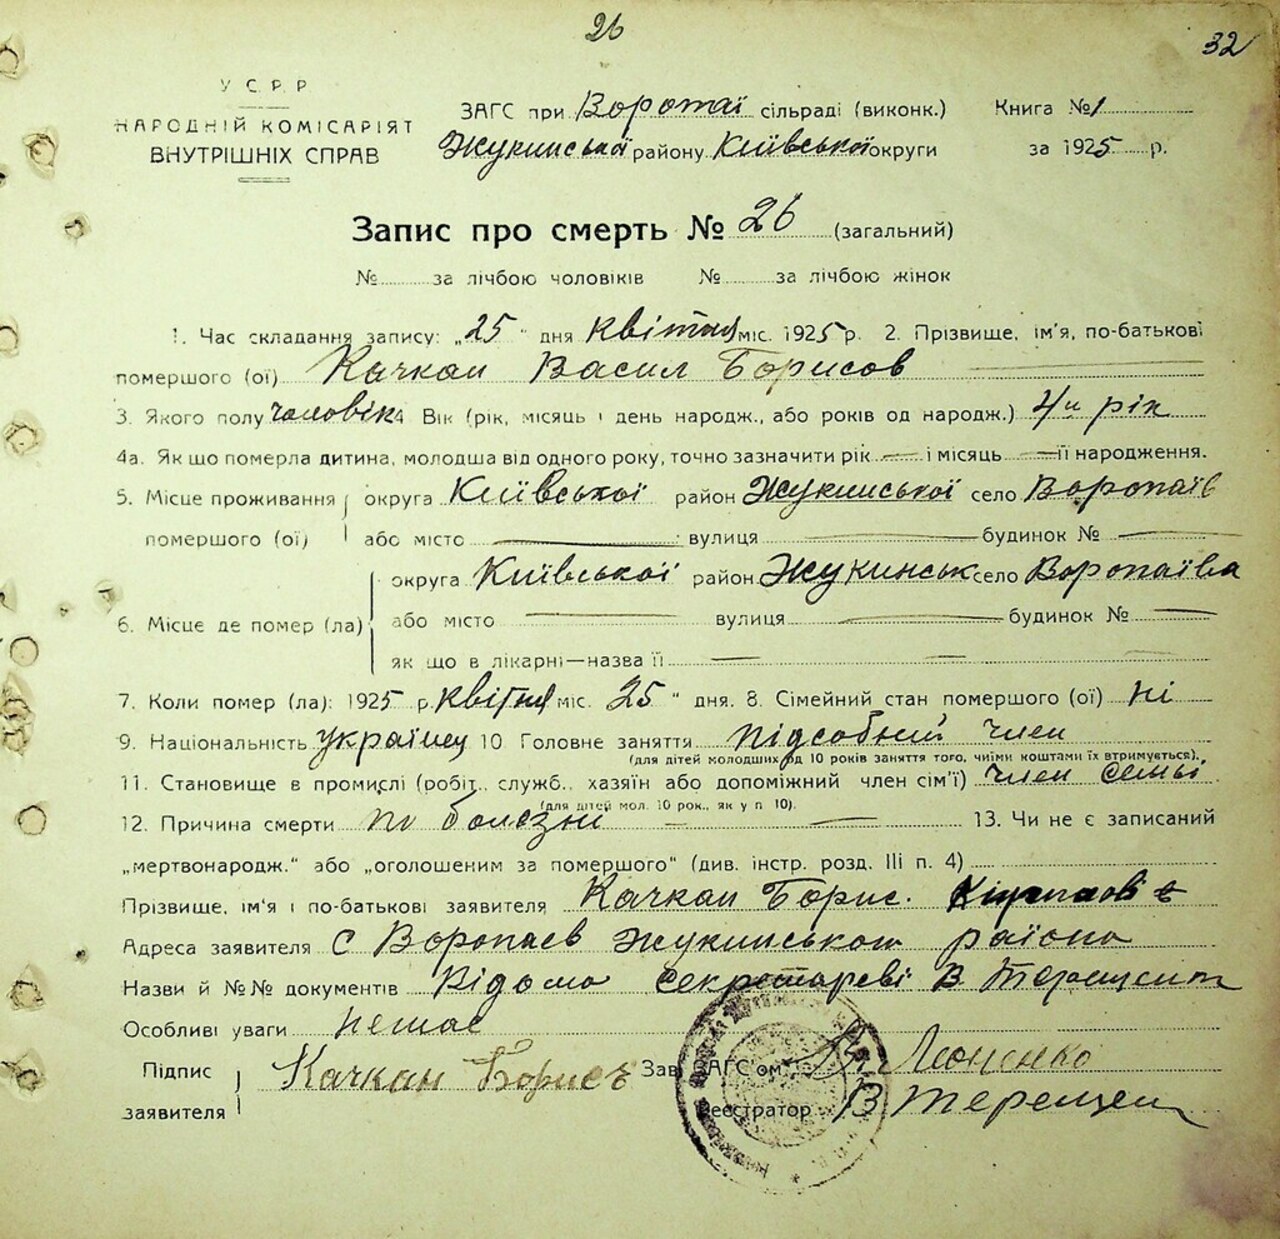 26
32
У С Р Р
НАРОДНІЙ КОМІСАРІЯТ
ВНУТРІШНІХ СПРАВ
ЗАГС при Воропаї сільраді (виконк.) Книга № 1
Жукинської району Київської округи за 1925 р.
Запис про смерть № 26 (загальний)
№ за лічбою чоловіків № за лічбою жінок
1. Час складання запису: „25" дня квітня міс. 1925 р. 2. Прізвище, ім'я, по-батькові
помершого (ої) Качкан Васил Борисов
3. Якого полу чоловік 4 Вік (рік, місяць і день народж., або років од народж.) 4й рік
4а. Як що померла дитина, молодша від одного року, точно зазначити рік — і місяць — її народження.
5. Місце проживання округа Київської район Жукинської село Воропаїв
помершого (ої) або місто — вулиця — будинок № —
округа Київської район Жукинськ село Воропаїва
6. Місце де помер (ла) або місто — вулиця — будинок № —
як що в лікарні—назва її — — —
7. Коли помер (ла): 1925 р. квітня міс. 25 " дня. 8. Сімейний стан помершого (ої) ні
9. Національність українец 10 Головне заняття підсобний член
(для дітей молодших од 10 років заняття того, чиїми коштами їх втримується).
11. Становище в промислі (робіт., служб., хазяїн або допоміжний член сім'ї) член семьї
(для дітей мол. 10 рок., як у п 10).
12. Причина смерти по болезні — — 13. Чи не є записаний
„мертвонародж." або „оголошеним за помершого" (див. інстр. розд. III п. 4)
Прізвище, ім'я і по-батькові заявителя Качкан Борис.
Адреса заявителя с Воропаев Жукинськом районо
Назви й №№ документів Відомо секротареві В Терещент
Особливі уваги немає
Підпис заявителя Качкан Борисъ Зав ЗАГС'ом Леоненко
Реєстратор В Терещен